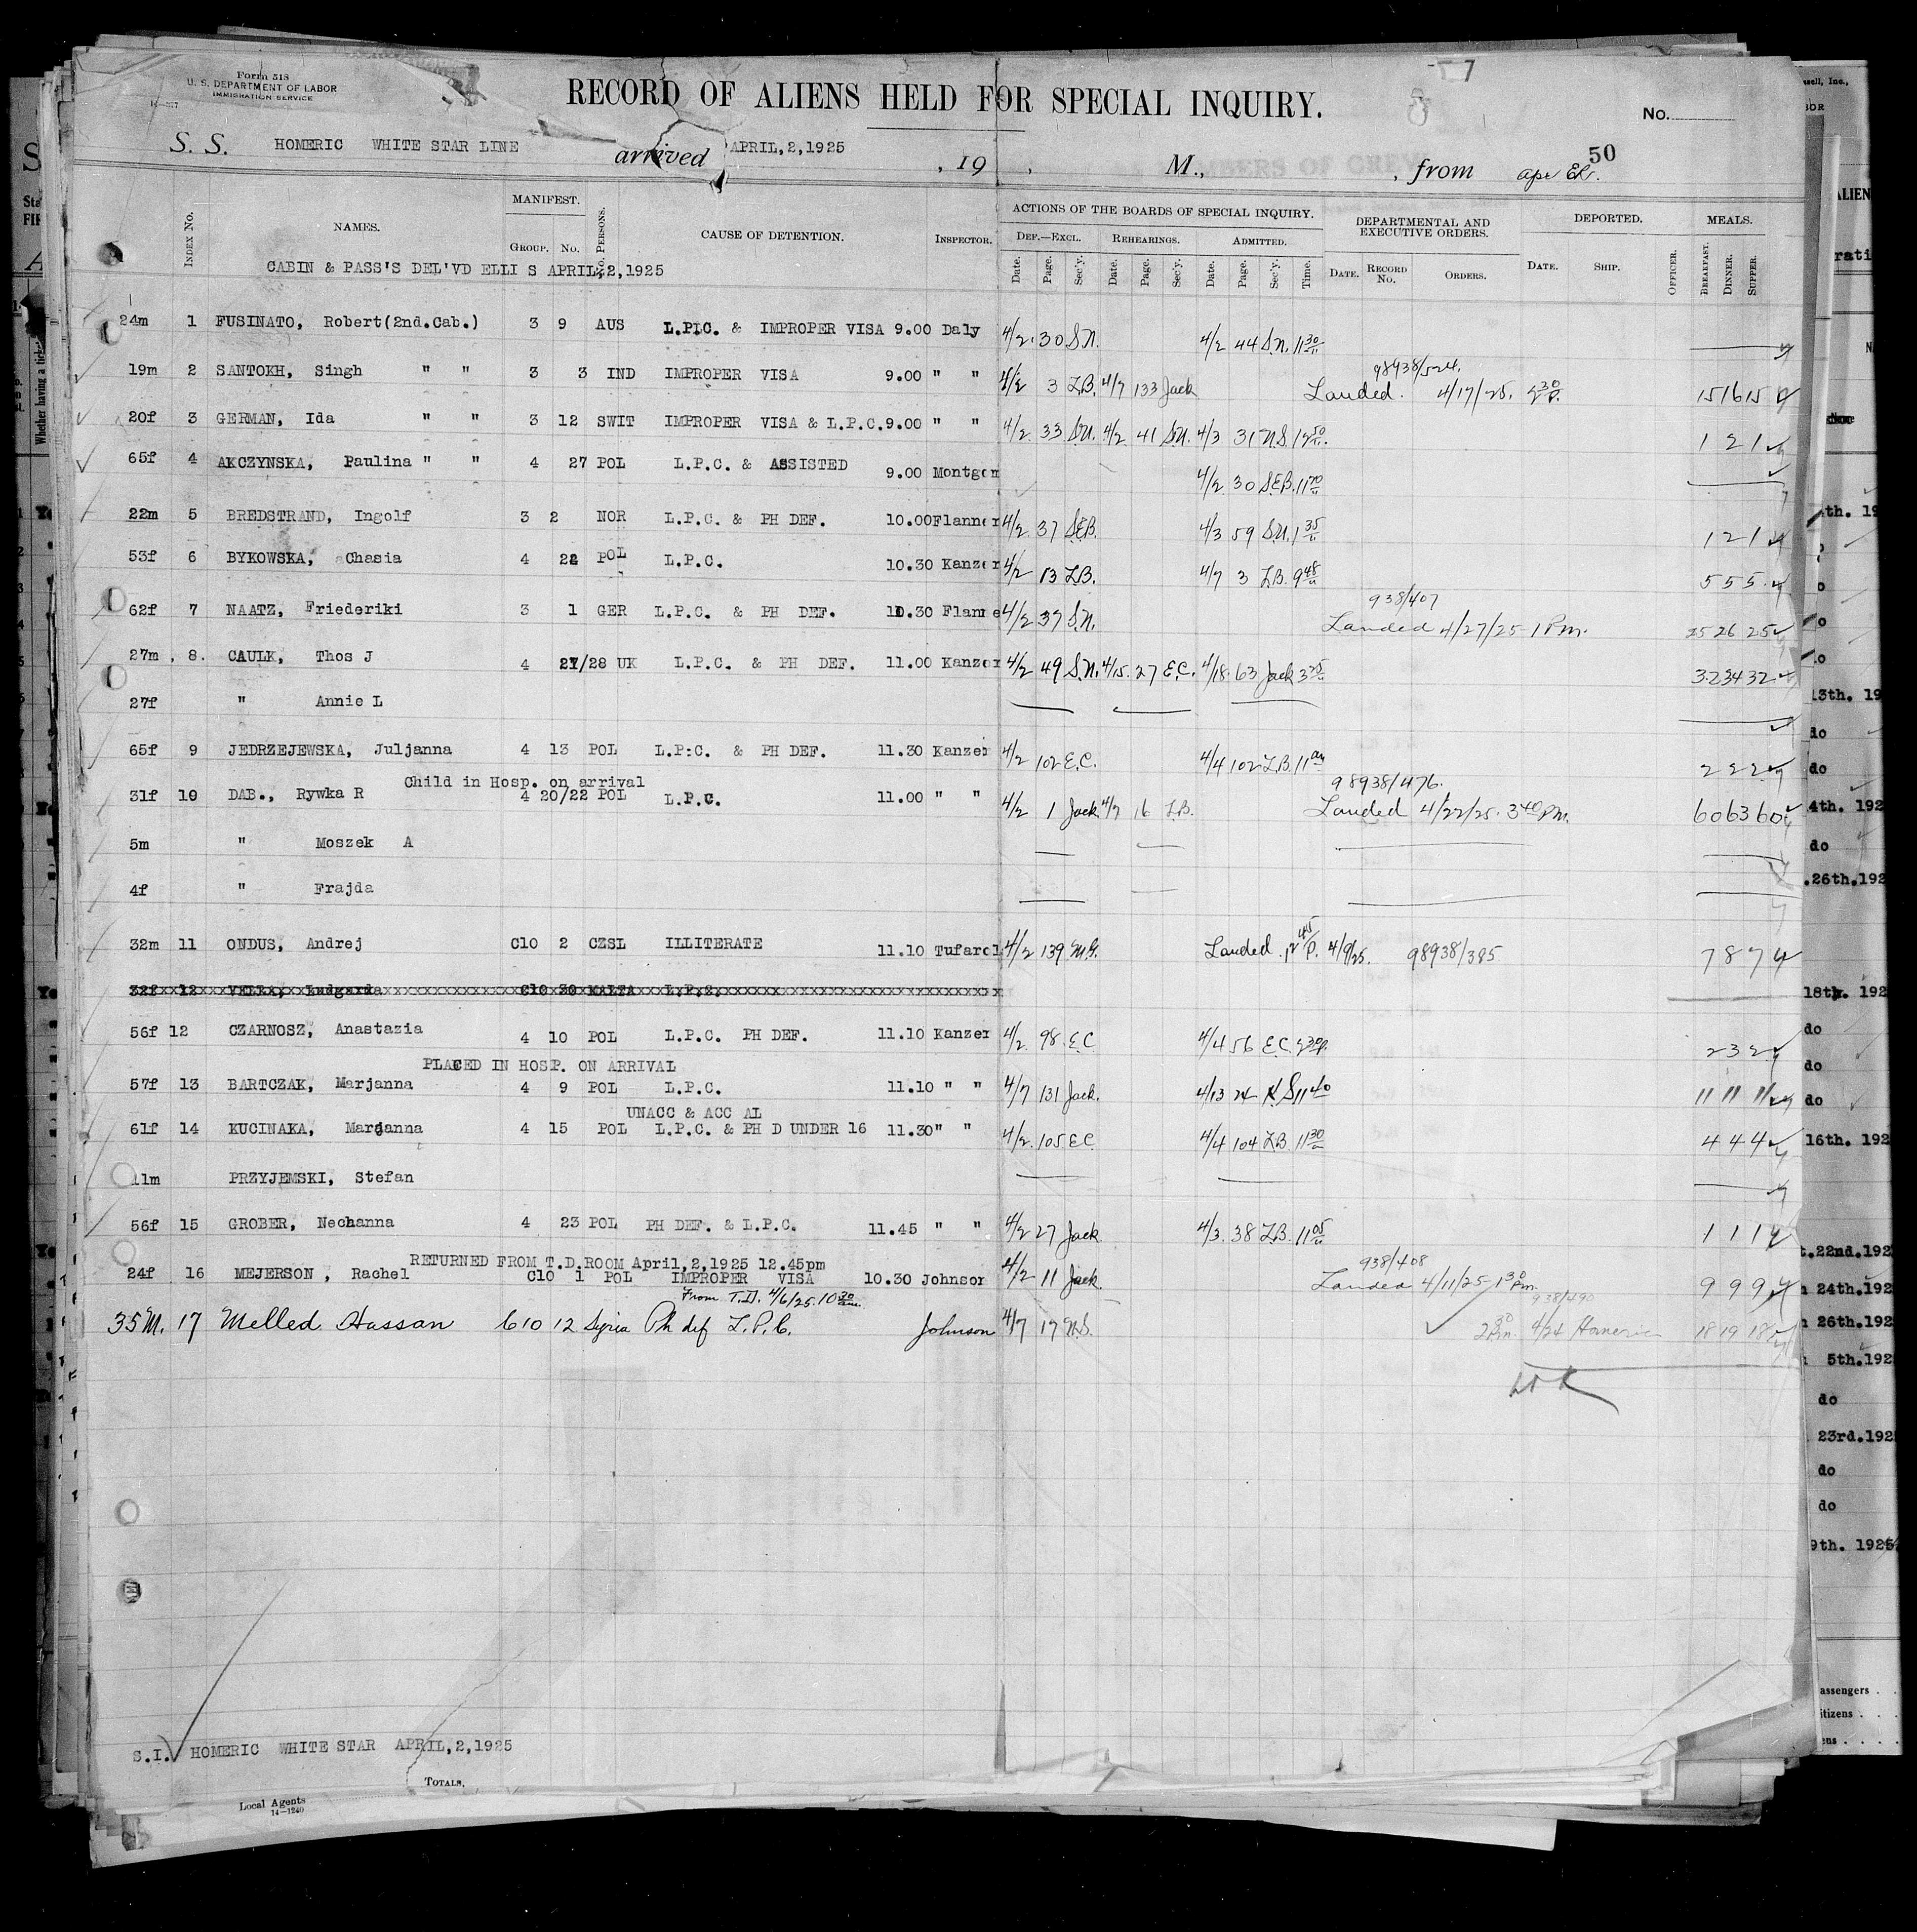 Form 518
U. S. DEPARTMENT OF LABOR
IMMIGRATION SERVICE
RECORD OF ALIENS HELD FOR SPECIAL INQUIRY.
7
No.
50
S. S. HOMERIC WHITE STAR LINE arrived APRIL,2,1925 , 19 , M., , from
INDEX No. NAMES. MANIFEST. GROUP. No. No. PERSONS. CAUSE OF DETENTION. INSPECTOR. ACTIONS OF THE BOARDS OF SPECIAL INQUIRY. DEPARTMENTAL AND EXECUTIVE ORDERS. DEPORTED. MEALS.
DEF.—EXCL. REHEARINGS. ADMITTED.
Date. Page. Sec'y. Date. Page. Sec'y. Date. Page. Sec'y. Time. DATE. RECORD No. ORDERS. DATE. SHIP. OFFICER. BREAKFAST. DINNER. SUPPER.
CABIN & PASS'S DEL'VD ELLI S APRIL,2,1925
24m 1 FUSINATO, Robert(2nd.Cab.) 3 9 AUS L.P.C. & IMPROPER VISA 9.00 Daly 4/2 30 S.N. 4/2 44 S.N. 11 30
98938/524
19m 2 SANTOKH, Singh " " 3 3 IND IMPROPER VISA 9.00 " " 4/2 3 L.B. 4/7 133 Jack Landed. 4/17/25. 2 30 P. 15 16 15
20f 3 GERMAN, Ida " " 3 12 SWIT IMPROPER VISA & L.P.C. 9.00 " " 4/2 33 S.N. 4/2 41 S.N. 4/3 31 N.S. 1 2 1
65f 4 AKCZYNSKA, Paulina " " 4 27 POL L.P.C. & ASSISTED 9.00 Montgom 4/2 30 S.E.B.
22m 5 BREDSTRAND, Ingolf 3 2 NOR L.P.C. & PH DEF. 10.00 Flanner 4/2 37 S.E.B. 4/3 59 S.N. 1 35 1 2 1
53f 6 BYKOWSKA, Chasia 4 22 POL L.P.C. 10.30 Kanzer 4/2 13 L.B. 4/7 3 L.B. 9 48 5 5 5
938/407
62f 7 NAATZ, Friederiki 3 1 GER L.P.C. & PH DEF. 10.30 Flanne 4/2 37 S.N. Landed 4/27/25 - 1 P.m. 25 26 25
27m 8. CAULK, Thos J 4 27/28 UK L.P.C. & PH DEF. 11.00 Kanzer 4/2 49 S.N. 4/15 27 E.C. 4/18 63 Jack 32 34 32
27f " Annie L
65f 9 JEDRZEJEWSKA, Juljanna 4 13 POL L.P:C. & PH DEF. 11.30 Kanzer 4/2 102 E.C. 4/4 102 L.B. 11 am 2 2 2
Child in Hosp. on arrival 98938/476.
31f 10 DAB., Rywka R 4 20/22 POL L.P.C. 11.00 " " 4/2 1 Jack 4/7 16 L.B. Landed 4/22/25. 3 40 P.m. 60 63 60
5m " Moszek A
4f " Frajda
32m 11 ONDUS, Andrej C10 2 CZSL ILLITERATE 11.10 Tufarol 4/2 139 M.G. Landed 12 45 P. 4/9/25. 98938/385 7 8 7
32f 12 VELLA, Ludgarda C10 30 MALTA L.P.C.
56f 12 CZARNOSZ, Anastazia 4 10 POL L.P.C. PH DEF. 11.10 Kanzer 4/2 98 E.C. 4/4 56 E.C. 2 30 P. 2 3 2
PLACED IN HOSP. ON ARRIVAL
57f 13 BARTCZAK, Marjanna 4 9 POL L.P.C. 11.10 " " 4/7 131 Jack. 4/13 24 11 40 11 11 11
UNACC & ACC AL
61f 14 KUCINAKA, Marjanna 4 15 POL L.P.C. & PH D UNDER 16 11.30 " " 4/2 105 E.C. 4/4 104 L.B. 11 30 4 4 4
11m PRZYJEMSKI, Stefan
56f 15 GROBER, Nechanna 4 23 POL PH DEF. & L.P.C. 11.45 " " 4/2 27 Jack 4/3 38 L.B. 11 05 1 1 1
RETURNED FROM T.D.ROOM April,2,1925 12.45pm 938/408
24f 16 MEJERSON , Rachel C10 1 POL IMPROPER VISA 10.30 Johnson 4/2 11 Jack Landed 4/11/25 - 1 30 P.m. 9 9 9
From T.D. 4/6/25. 10 30 am. 938/490
35 M. 17 Melled Hassan C 10 12 Syria Ph def L.P.C. Johnson 4/7 17 N.S. 2 30 P.m. 4/24 Homeric 18 19 18
S.I. HOMERIC WHITE STAR APRIL,2,1925
TOTALS,
Local Agents
14—1240